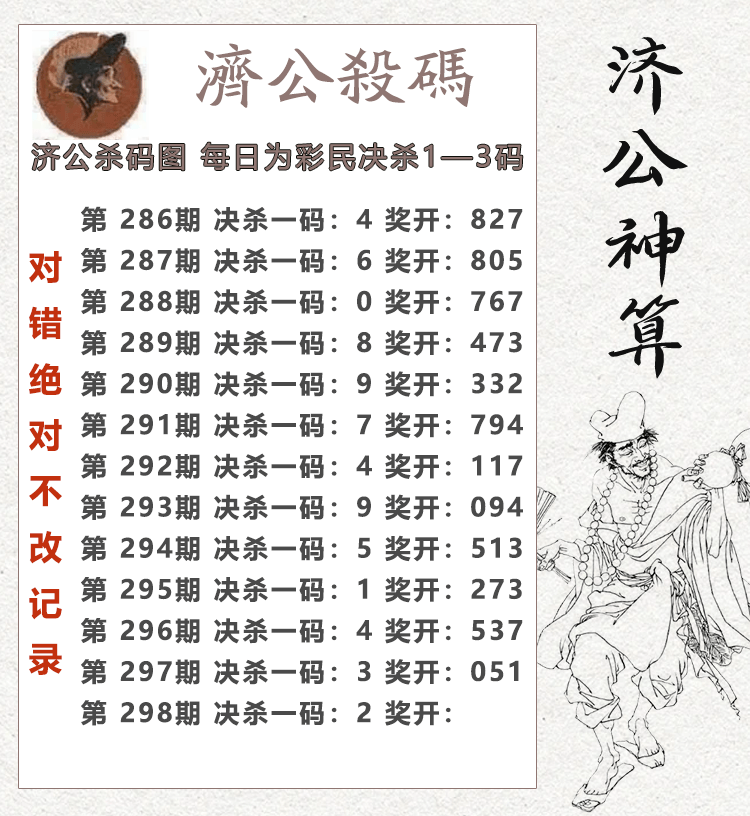 濟公殺碼
济公杀码图 每日为彩民决杀1—3码
第 286期 决杀一码：4 奖开：827
第 287期 决杀一码：6 奖开：805
第 288期 决杀一码：0 奖开：767
第 289期 决杀一码：8 奖开：473
第 290期 决杀一码：9 奖开：332
第 291期 决杀一码：7 奖开：794
第 292期 决杀一码：4 奖开：117
第 293期 决杀一码：9 奖开：094
第 294期 决杀一码：5 奖开：513
第 295期 决杀一码：1 奖开：273
第 296期 决杀一码：4 奖开：537
第 297期 决杀一码：3 奖开：051
第 298期 决杀一码：2 奖开：
对错绝对不改记录
济公神算